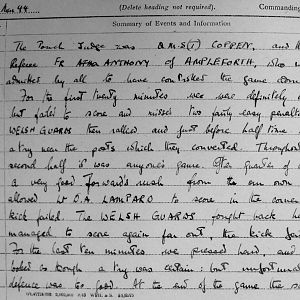 Nov 44
(Delete heading not required).
Commanding
Summary of Events and Information
The Touch Judge was Q.M.S(I) COPPEN, and
Referee FR AFRA ANTHONY of AMPLEFORTH, who
admitted by all to have controlled the game
For the first twenty minutes we were definitely
but failed to score and missed two fairly easy penalties
WELSH GUARDS then rallied and just before half time
a try near the posts which they converted. Throughout
second half it was anyone's game. After quarter of
a very good forward's rush from the own
allowed Lt O.A. LAMPARD to score in the corner
kick failed. The WELSH GUARDS fought back
managed to score again far out the kick
For the last ten minutes we pressed hard, and
looked as though a try was certain: but unfort
defence was too good. At the end of the game the